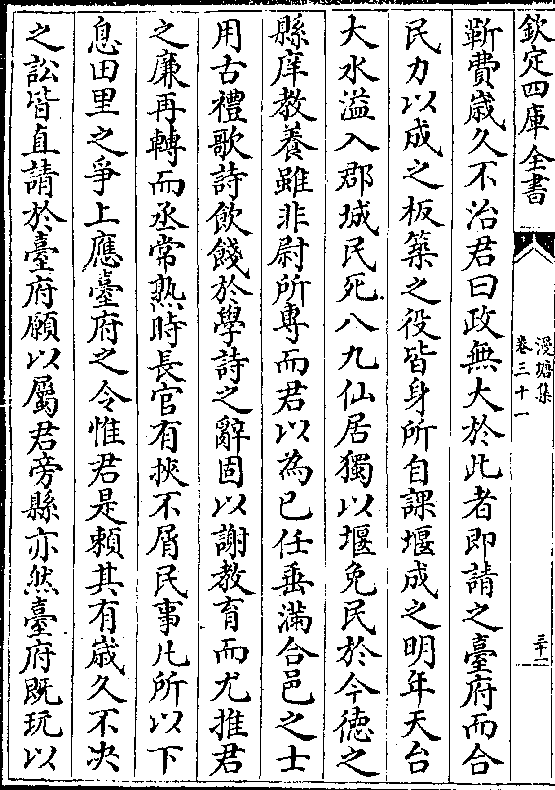 欽定四庫全書
漫塘集
卷三十一
三十一
靳費歳久不治君曰政無大於此者即請之臺府而合
民力以成之板築之役皆身所自課堰成之明年天台
大水溢入郡城民死八九仙居獨以堰免民於今徳之
縣庠教養雖非尉所専而君以為已任垂滿合邑之士
用古禮歌詩飲餞於學詩之辭固以謝教育而尤推君
之廉再轉而丞常熟時長官有挾不屑民事凡所以下
息田里之爭上應臺府之令惟君是賴其有歳久不决
之訟皆直請於臺府願以屬君旁縣亦然臺府既玩以